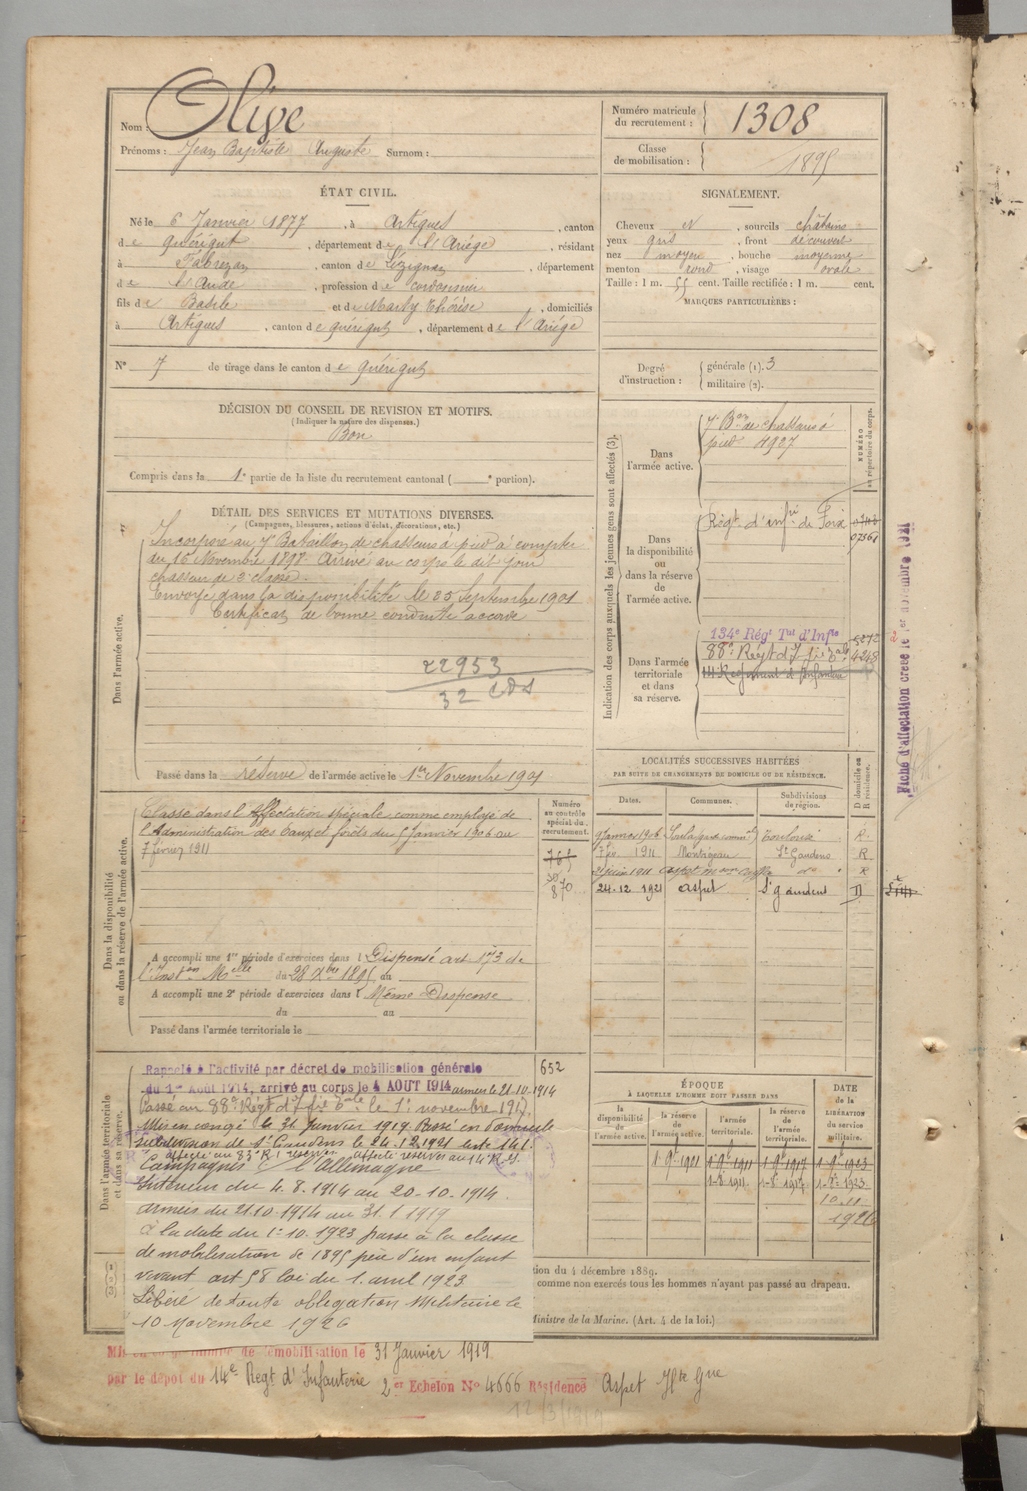 Nom : Olive
Prénoms : Jean Baptiste Auguste Surnom :
Numéro matricule du recrutement : 1308
Classe de mobilisation : 1895
ÉTAT CIVIL.
Né le 6 Janvier 1877, à Artigues, canton
de Quérigut, département de l'Ariège, résidant
à Fabrezan, canton de Lézignan, département
de l'Aude, profession de cordonnier
fils de Basile et de Marty Thérèse, domiciliés
à Artigues, canton de Quérigut, département de l'Ariège
N° 7 de tirage dans le canton de Quérigut
SIGNALEMENT.
Cheveux N, sourcils châtains
yeux gris, front découvert
nez moyen, bouche moyenne
menton rond, visage ovale
Taille : 1 m. 55 cent. Taille rectifiée : 1 m. cent.
MARQUES PARTICULIÈRES :
Degré d'instruction : générale (1). 3
militaire (2).
DÉCISION DU CONSEIL DE REVISION ET MOTIFS.
(Indiquer la nature des dispenses.)
Bon
Compris dans la 1e partie de la liste du recrutement cantonal ( e portion).
DÉTAIL DES SERVICES ET MUTATIONS DIVERSES.
(Campagnes, blessures, actions d'éclat, décorations, etc.)
Dans l'armée active.
Incorporé au 7e Bataillon de chasseurs à pied à compter
du 16 Novembre 1898 Arrivé au corps le dit jour
chasseur de 2e classe.
Envoyé dans la disponibilité le 25 Septembre 1901
Certificat de bonne conduite accordé
22953
32 CDS
Passé dans la réserve de l'armée active le 1er Novembre 1901
Indication des corps auxquels les jeunes gens sont affectés (3).
NUMÉRO au répertoire du corps.
Dans l'armée active.
7e Bon de chasseurs à
pied 4937
Dans la disponibilité ou dans la réserve de l'armée active.
Régt d'infie de Foix
07561
Dans l'armée territoriale et dans sa réserve.
134e Régt Tal d'Infie
88e Régt d'Ifie Tale 4248
14 Régiment d'Infanterie
Fiche d'affectation créée le 1er novembre 1921
Dans la disponibilité ou dans la réserve de l'armée active.
Numéro au contrôle spécial du recrutement.
Classé dans l'Affectation spéciale comme employé de
l'Administration des Eaux et forêts du 9 Janvier 1906 au
7 février 1911
765
870
A accompli une 1re période d'exercices dans l Dispensé art 173 de
l'Inston Melle du 28 Xbre 1895 au
A accompli une 2e période d'exercices dans l Même Dispense
du au
Passé dans l'armée territoriale le
LOCALITÉS SUCCESSIVES HABITÉES
PAR SUITE DE CHANGEMENTS DE DOMICILE OU DE RÉSIDENCE.
Dates. Communes. Subdivisions de région. D domicile ou R résidence.
9 Janvier 1906 Toulouse R.
7 fév 1911 Montréjeau St Gaudens R
21 juin 1911 Aspet do R
24.12.1921 Aspet St gaudens D
Dans l'armée territoriale et dans sa réserve.
Rappelé à l'activité par décret de mobilisation générale
du 1er Août 1914, arrivé au corps le 4 AOUT 1914 armées le 21.10.1914
652
Passé au 88e Régt d'Ifie Tale le 1er novembre 1917.
Mis en congé le 31 Janvier 1919. Passé en domicile
subdivision de St Gaudens le 24.12.1921
affecté réserves au 14e R.I.
Campagnes c/ l'Allemagne
Intérieur du 4.8.1914 au 20-10-1914.
armées du 21.10.1914 au 31.1.1919
à la date du 1er 10.1923 passe à la classe
de mobilisation de 1895 père d'un enfant
vivant art 58 loi du 1. avril 1923
Libéré de toute obligation militaire le
10 Novembre 1926
ÉPOQUE
À LAQUELLE L'HOMME DOIT PASSER DANS
la disponibilité de l'armée active. la réserve de l'armée active. l'armée territoriale. la réserve de l'armée territoriale.
DATE de la LIBÉRATION du service militaire.
1 9bre 1911 1 9bre 1917 1 9bre 1923
1-8e 1911. 1-8e 1917 1-8e 1923.
10.11
1926
tion du 4 décembre 1889.
comme non exercés tous les hommes n'ayant pas passé au drapeau.
Ministre de la Marine. (Art. 4 de la loi.)
(1)
(2)
(3)
démobilisation le 31 Janvier 1919
par le dépôt du 14e Régt d'Infanterie 2er Echelon No 4666 Résidence Aspet Hte Gne
12/3/1919